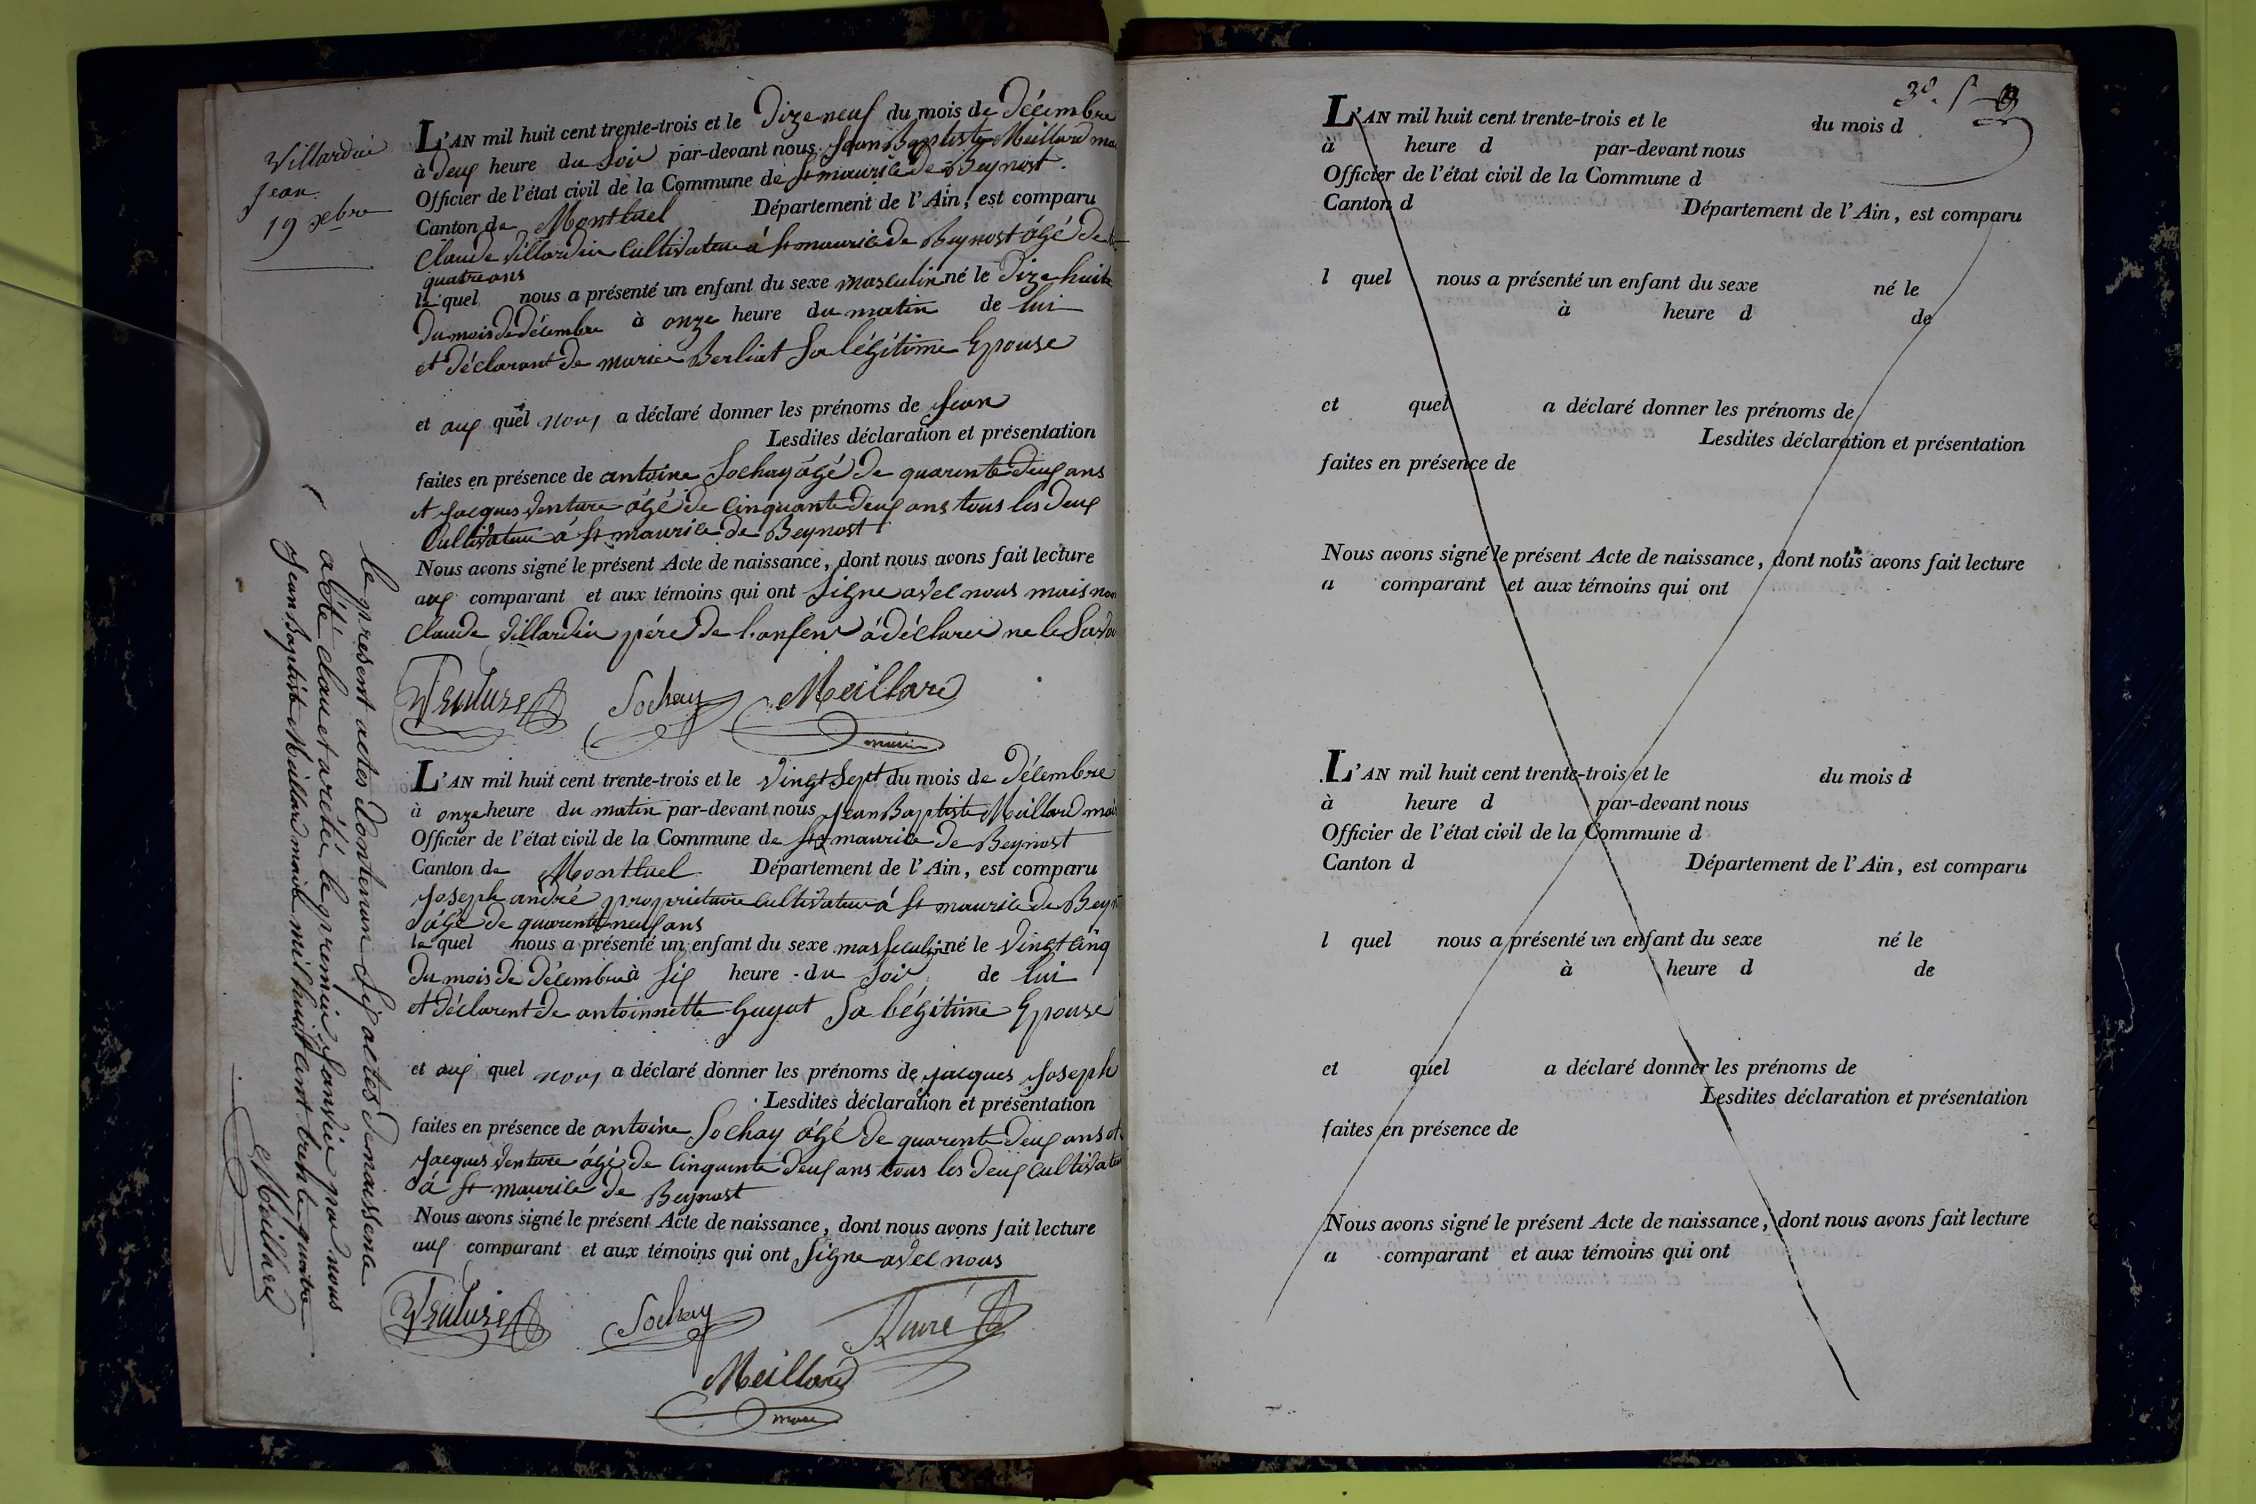 Villardin
Jean
19 xbre
L'AN mil huit cent trente-trois et le Dize neuf du mois de Décembre
à deux heure du Soir par-devant nous Jean Baptiste Meillard
Officier de l'état civil de la Commune de St maurice de Beynost
Canton de Montluel Département de l'Ain, est comparu
Claude Villardin Cultivateur à St maurice de Beynost âgé de
quatre ans
le quel nous a présenté un enfant du sexe masculin né le Dize huite
Du mois de décembre à onze heure du matin de lui
et déclarant de marie Berliat Sa légitime Epouse
et aux quel nous a déclaré donner les prénoms de Jean
Lesdites déclaration et présentation
faites en présence de antoine Sochay âgé de quarente deux ans
et Jacques Venture âgé de Cinquante deux ans tous les deux
Cultivateur à St maurice de Beynost
Nous avons signé le présent Acte de naissance, dont nous avons fait lecture
aux comparant et aux témoins qui ont Signe avec nous mais non
Claude Villardin père de l'enfent à déclarer ne le
Venture Sochay Meillard
maire
L'AN mil huit cent trente-trois et le Vingt Sept du mois de Décembre
à onze heure du matin par-devant nous Jean Baptiste Meillard
Officier de l'état civil de la Commune de St maurice de Beynost
Canton de Montluel Département de l'Ain, est comparu
Joseph andré propriétaire Cultivateur à St maurice de
âgé de quarente neuf ans
le quel nous a présenté un enfant du sexe né le Vingt Cinq
Du mois de Décembre à Six heure du Soir de lui
et déclarent de antoinette Guyot Sa légitime Epouse
et aux quel nous a déclaré donner les prénoms de jacques Joseph
Lesdites déclaration et présentation
faites en présence de antoine Sochay âgé de quarente deux ans et
Jacques Venture âgé de Cinquante deux ans tous les deux
à St maurice de Beynost
Nous avons signé le présent Acte de naissance, dont nous avons fait lecture
aux comparant et aux témoins qui ont Signe avec nous
Venture Sochay André
Meillard
maire
le present actes Contenan Six actes de naissence
a été clau et arété le premier Janvier par nous
Jean Baptist Meillard maire mil huit Cent trente quatre
Meillard
L'AN mil huit cent trente-trois et le du mois d
à heure d par-devant nous
Officier de l'état civil de la Commune d
Canton d Département de l'Ain, est comparu
l quel nous a présenté un enfant du sexe né le
à heure d de
et quel a déclaré donner les prénoms de
Lesdites déclaration et présentation
faites en présence de
Nous avons signé le présent Acte de naissance, dont nous avons fait lecture
a comparant et aux témoins qui ont
L'AN mil huit cent trente-trois et le du mois d
à heure d par-devant nous
Officier de l'état civil de la Commune d
Canton d Département de l'Ain, est comparu
l quel nous a présenté un enfant du sexe né le
à heure d de
et quel a déclaré donner les prénoms de
Lesdites déclaration et présentation
faites en présence de
Nous avons signé le présent Acte de naissance, dont nous avons fait lecture
a comparant et aux témoins qui ont